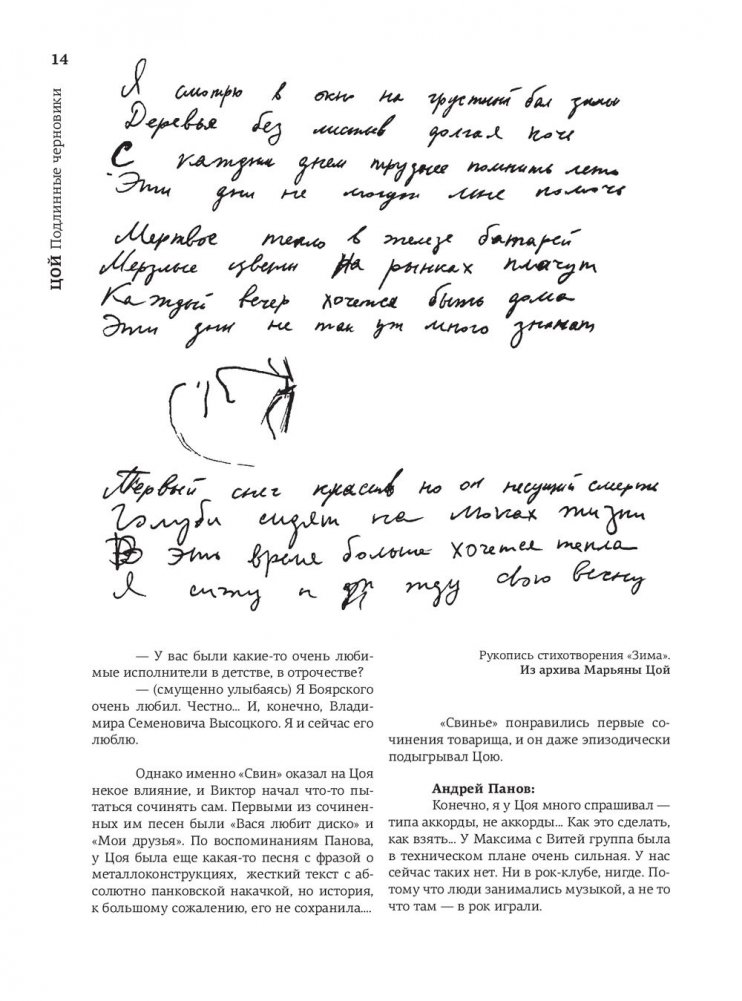 14
ЦОЙ Подлинные черновики
Я смотрю в окно на грустный бал зимы
Деревья без листьев долгая ночь
С каждым днем труднее помнить лето
Эти дни не могут мне помочь
Мертвое тепло в железе батарей
Мерзлые цветы на рынках плачут
Каждый вечер хочется быть дома
Эти дни не так уж много значат
Первый снег красив но он несущий смерть
Голуби сидят на люках жизни
В это время больше хочется тепла
Я сижу и жду свою весну
— У вас были какие-то очень люби-
мые исполнители в детстве, в отрочестве?
— (смущенно улыбаясь) Я Боярского
очень любил. Честно... И, конечно, Влади-
мира Семеновича Высоцкого. Я и сейчас его
люблю.
Однако именно «Свин» оказал на Цоя
некое влияние, и Виктор начал что-то пы-
таться сочинять сам. Первыми из сочинен-
ных им песен были «Вася любит диско» и
«Мои друзья». По воспоминаниям Панова,
у Цоя была еще какая-то песня с фразой о
металлоконструкциях, жесткий текст с аб-
солютно панковской накачкой, но история,
к большому сожалению, его не сохранила....
Рукопись стихотворения «Зима».
Из архива Марьяны Цой
«Свинье» понравились первые со-
чинения товарища, и он даже эпизодически
подыгрывал Цою.
Андрей Панов:
Конечно, я у Цоя много спрашивал —
типа аккорды, не аккорды... Как это сделать,
как взять... У Максима с Витей группа была
в техническом плане очень сильная. У нас
сейчас таких нет. Ни в рок-клубе, нигде. По-
тому что люди занимались музыкой, а не то
что там — в рок играли.